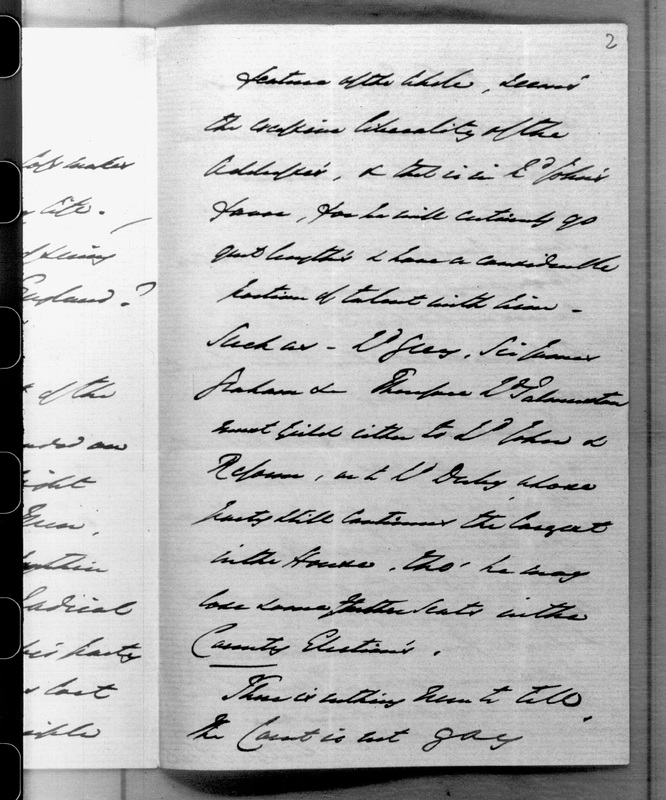 2
feature of the whole, seems
the excessive liberality of the
Addresses, & that is in Ld John's
favor, for he will certainly go
great lengths & have a considerable
portion of talent with him -
Such as - Ld Grey, Sir James
Graham &c Therefore Ld Palmerston
must yield either to Ld John &
Reform, or to Ld Derby, whose
party still continues the largest
in the House, tho' he may
lose some further seats in the
County Elections.
There is nothing new to tell,
The Court is not gay
maker
life.
of seeing
England?
of the
ended on
right
Radical
his party
lost